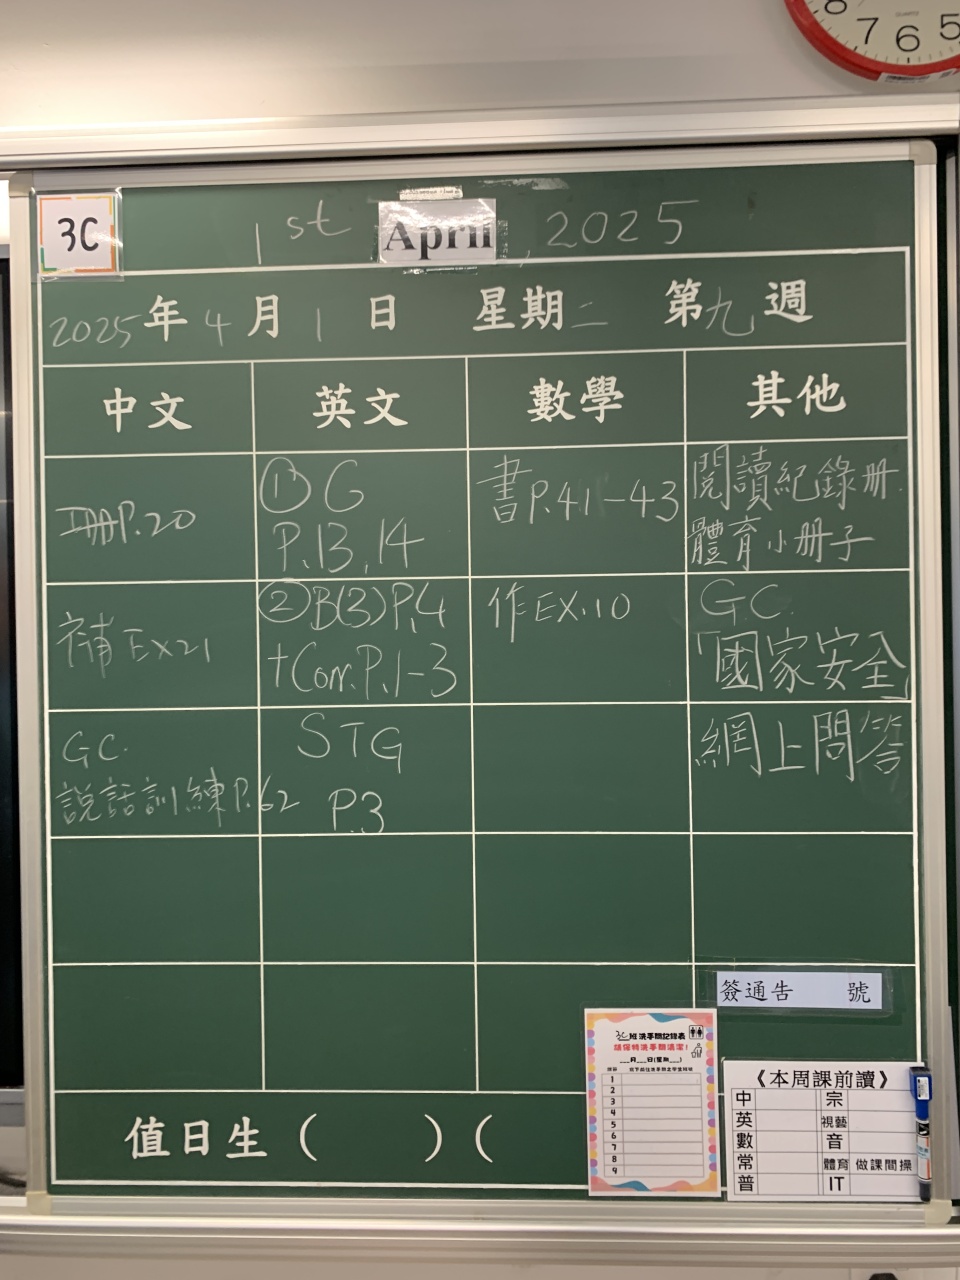 8 7 6 5
QUARTZ
3C
1st April, 2025
2025年4月1日 星期二 第九週
中文 英文 數學 其他
P.20
① G
P.13, 14
書P.41-43
閱讀紀錄册
體育小册子
補EX21
② B(3)P.4
+Corr.P.1-3
作EX.10
G.C.
「國家安全」
G.C.
説話訓練P.62
STG
P.3
網上問答
簽通告 號
值日生 ( ) (
3C班洗手間記錄表
請保持洗手間清潔!
___月___日(星期___)
1
2
3
4
5
6
7
8
9
《本周課前讀》
中 宗
英 視藝
數 音
常 體育 做課間操
普 IT